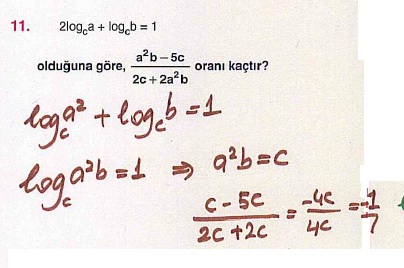 11. 2log_c a + log_c b = 1
olduğuna göre, (a²b – 5c)/(2c + 2a²b) oranı kaçtır?
log_c a² + log_c b = 1
log_c a²b = 1 ⇒ a²b = c
(c - 5c)/(2c + 2c) = (-4c)/(4c) = -1